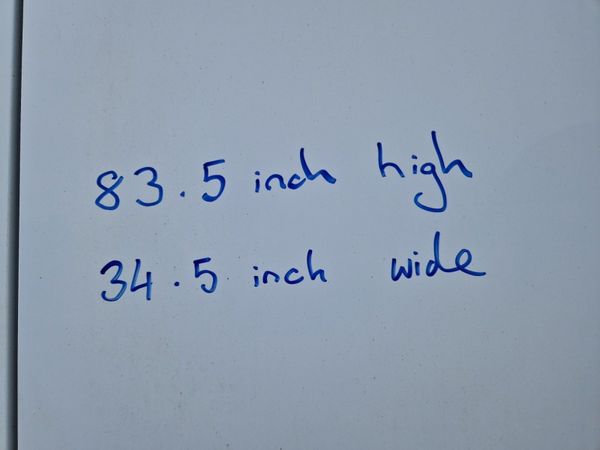 83.5 inch high
34.5 inch wide